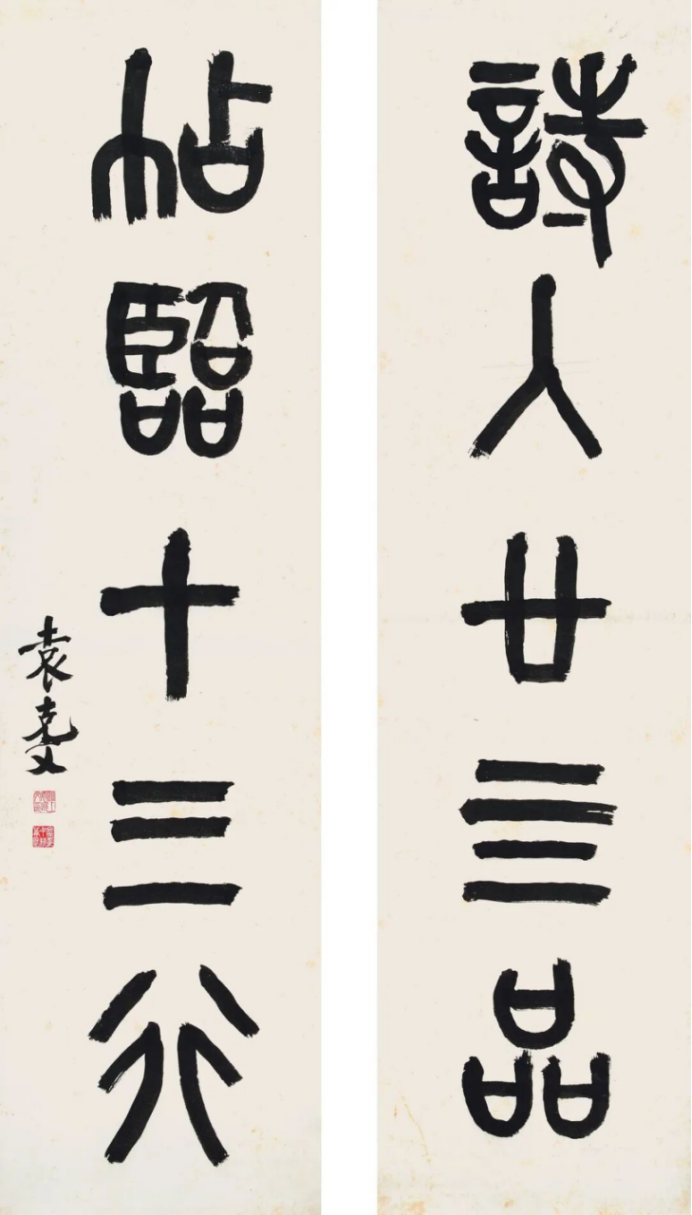 詩人廿亖品
帖臨十三行
袁克文